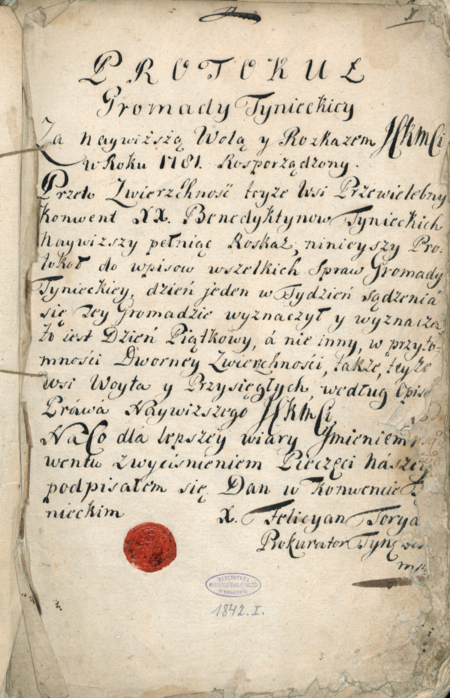 PROTOKUŁ
Gromady Tynieckicy
Za naywiższą Wolą y Rozkazem JCkmCi
w Roku 1781. Rosporządzony.
Przeto Zwierzchność teyże Wsi Przewielebny
Konwent XX. Benedyktynow Tynieckich
naywiższy pełniąc Roskaz, ninieyszy Pro-
tokoł do wpisow wszelkich Spraw Gromady
Tynieckiey, dzień jeden w Tydzień sądzenia
się tey Gromadzie wyznaczył y wyznacza
to iest Dzień Piątkowy, á nie inny, w przyto-
mności Dworney Zwierchności, także, teyże
Wsi Woyta y Przysięgłych według Opisu
Práwa Naywiższego JCkmCi
Na Co dla lepszey wiary Jmieniem
wentu z wyciśnieniem Pieczęci Nászey
podpisałem się Dan w Konwencie
nieckim X. Felicyan Torya
Prokurator Tyn
1842. I.